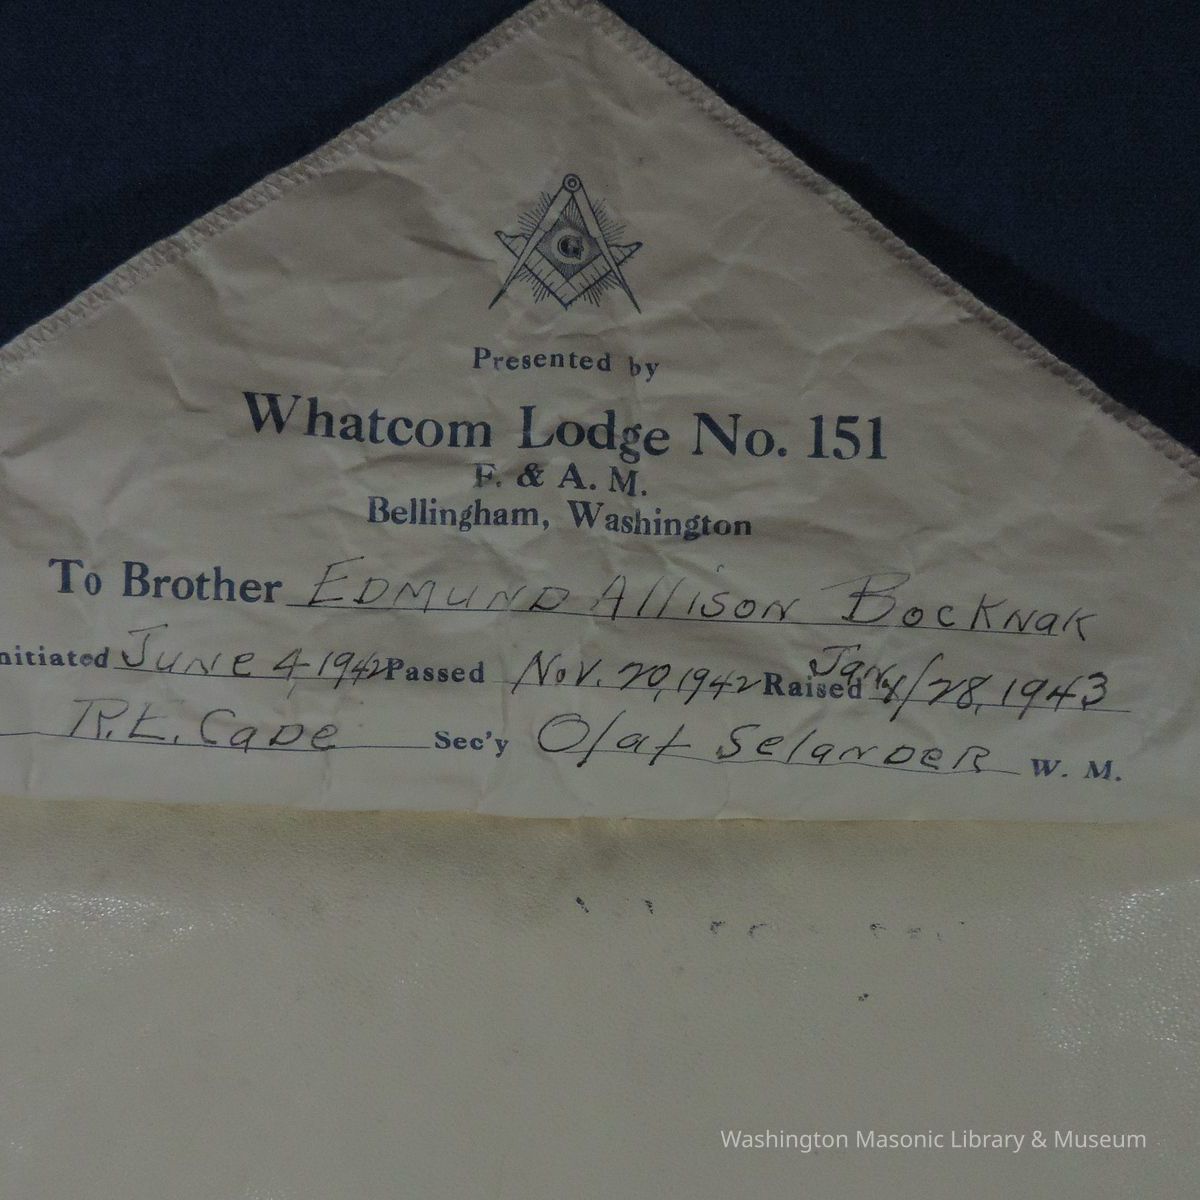 G
Presented by
Whatcom Lodge No. 151
F. & A. M.
Bellingham, Washington
To Brother EDMUND Allison Bocknak
nitiated June 4, 1942 Passed Nov. 20, 1942 Raised Jan. 28, 1943
R.E. Cade Sec'y Olaf Selander W. M.
Washington Masonic Library & Museum